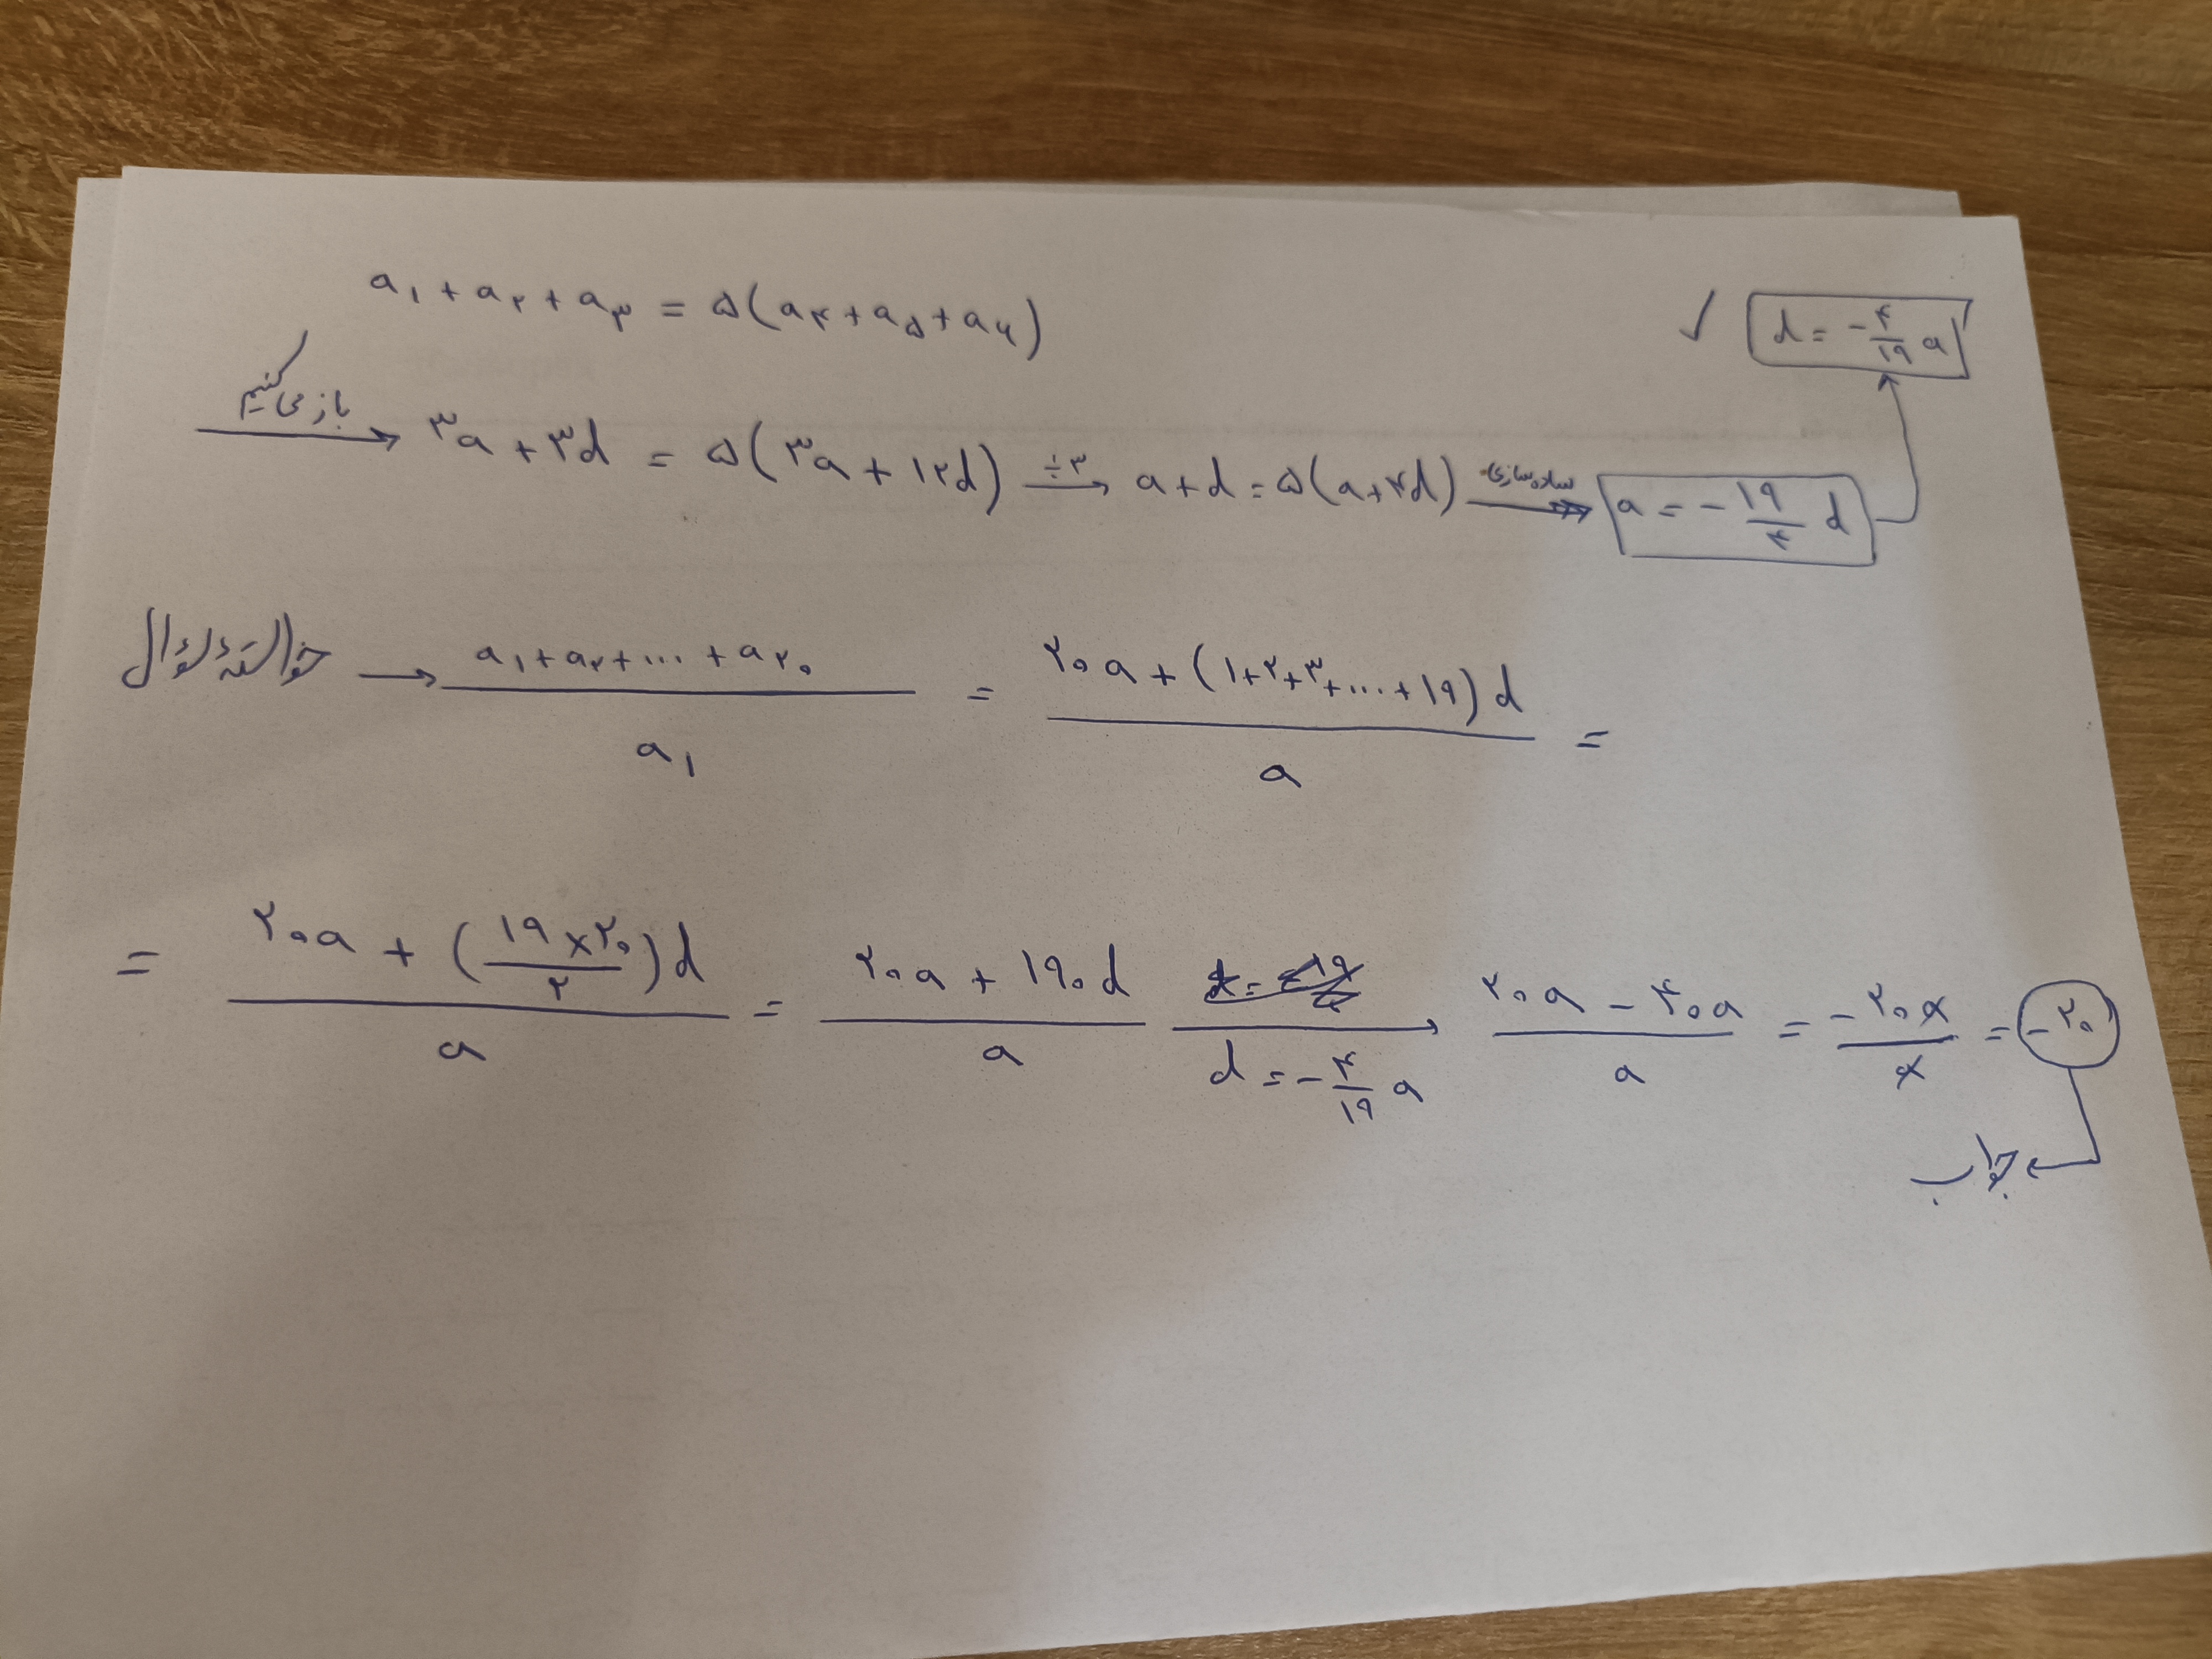 a₁ + a₂ + a₃ = ۵(a₴ + a₵ + a₶)
✓ d = -۴/۱۹ a
باز می‌کنیم → ۳a + ۳d = ۵(۳a + ۱۲d) ÷۳ → a + d = ۵(a + ۴d) ساده‌سازی → a = -۱۹/۴ d
خواستهٔ سؤال → (a₁ + a₂ + ... + a₂₀)/a₁ = (۲۰a + (۱+۲+۳+...+۱۹)d)/a =
= (۲۰a + (۱۹×۲۰/۲)d)/a = (۲۰a + ۱۹۰d)/a → d = -۴/۱۹ a (۲۰a - ۴۰a)/a = -۲۰a/a = -۲۰
جواب